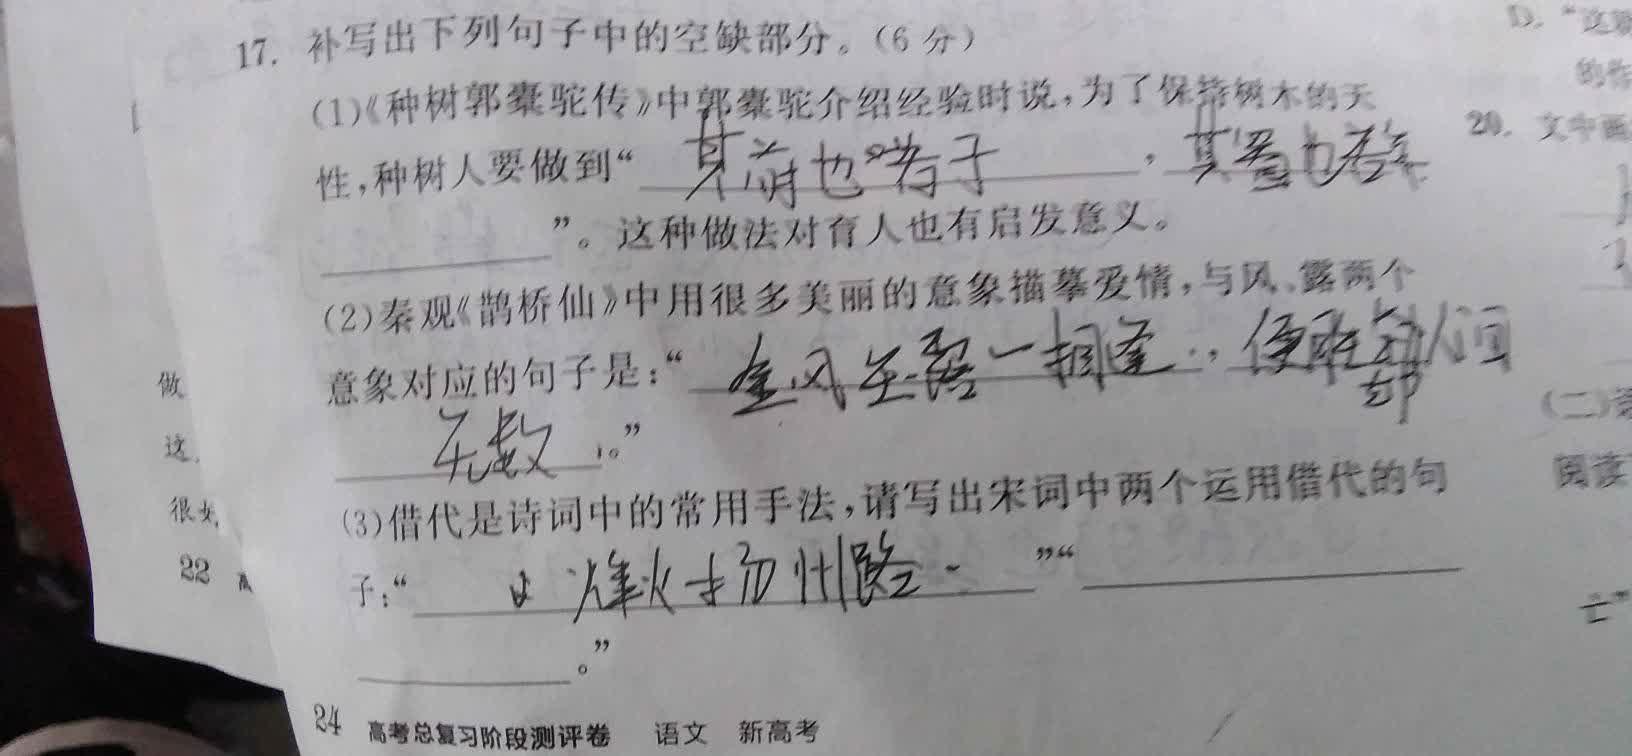 17. 补写出下列句子中的空缺部分。(6分)
(1)《种树郭橐驼传》中郭橐驼介绍经验时说,为了保持树木的天
性,种树人要做到“其莳也若子,其置也若弃
”。这种做法对育人也有启发意义。
(2)秦观《鹊桥仙》中用很多美丽的意象描摹爱情,与风、露两个
意象对应的句子是:“金风玉露一相逢,便胜却人间
无数。”
(3)借代是诗词中的常用手法,请写出宋词中两个运用借代的句
子:“烽火扬州路”“
。”
24 高考总复习阶段测评卷 语文 新高考
做
这
很
22
D. “这
的作
20. 文中画
(二)
阅读
亡”